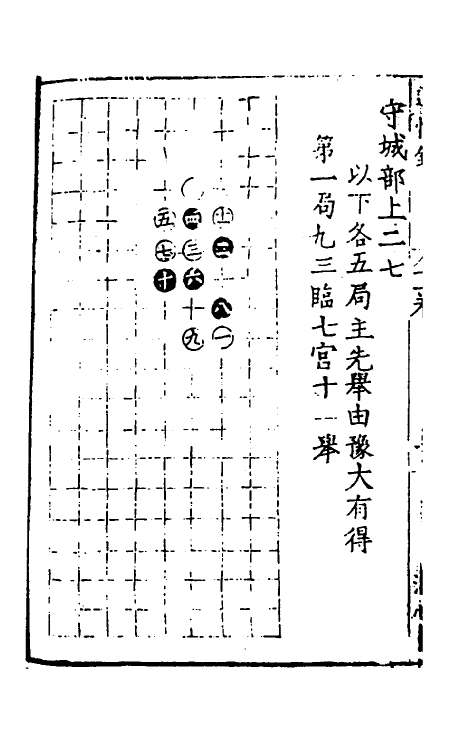 守城部上二七
以下各五局主先舉由豫大有得
第一局九三臨七宮十一舉
五 四 土
七 三 二
十 六
十 八
九 一